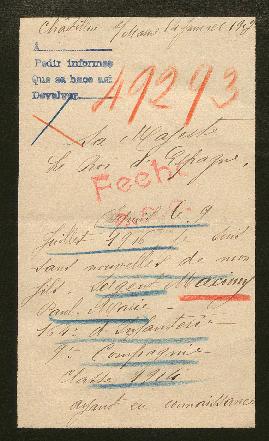 Châtillon s/ Marne 14 janvier 19
A
Pedir informes
Que se hace así
Devolver
49293
Sa Majesté
Le Roi d'Espagne,
Fecha
Depuis le 9
juillet 1916 je suis
sans nouvelles de mon
fils. Logeart Maximy
Paul Marie
d'Infanterie -
9e Compagnie -
Classe 1914
ayant eu connaissance